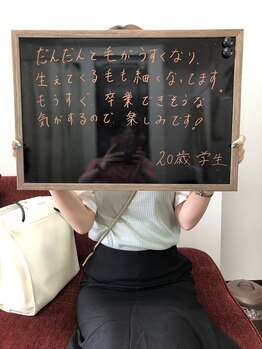 だんだんと毛がうすくなり、
生えてくる毛も細くなってます。
もうすぐ、卒業できそうな
気がするので、楽しみです!
20歳 学生